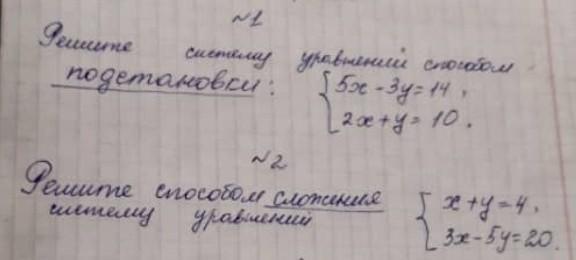 №1
Решите систему уравнений способом
подстановки: { 5x - 3y = 14,
2x + y = 10.
№2
Решите способом сложения { x + y = 4,
систему уравнений 3x - 5y = 20.